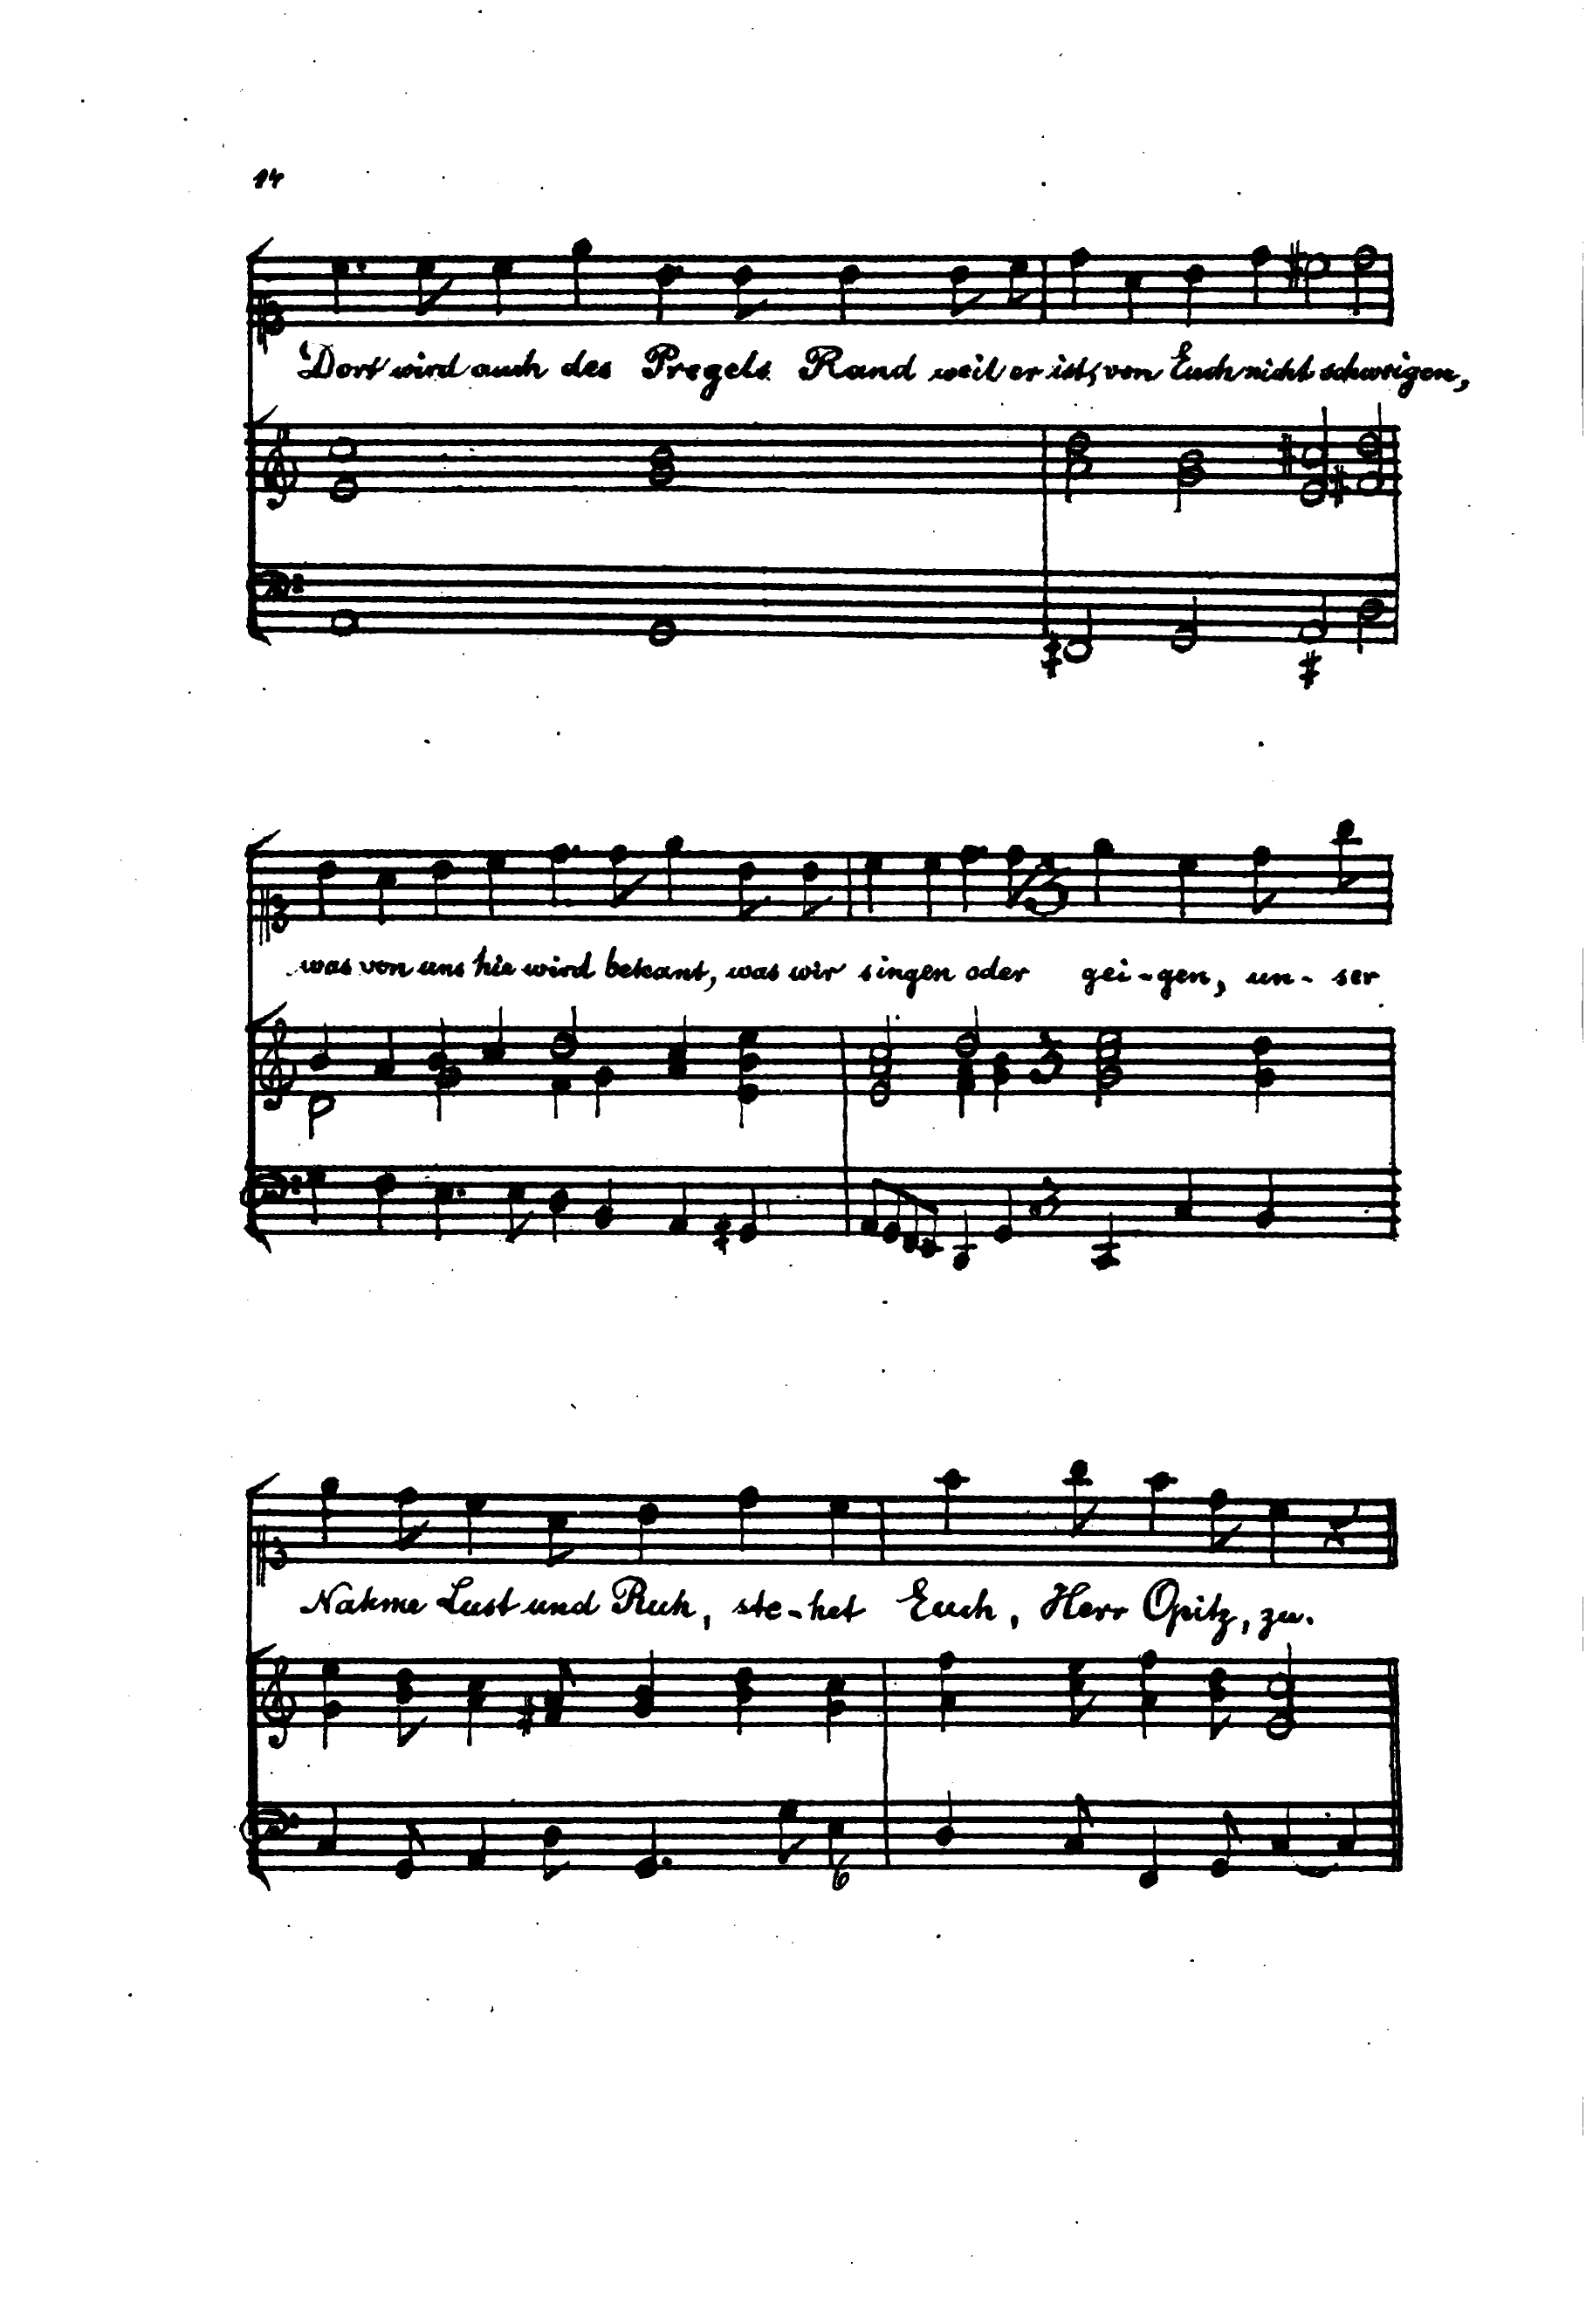 14
Dort wird auch des Pregels Rand weil er ist, von Euch nicht schweigen,
was von uns hie wird bekant, was wir singen oder gei-gen, un-ser
3
3
3
Nahme Lust und Ruh, ste-het Euch, Herr Opitz, zu.
6